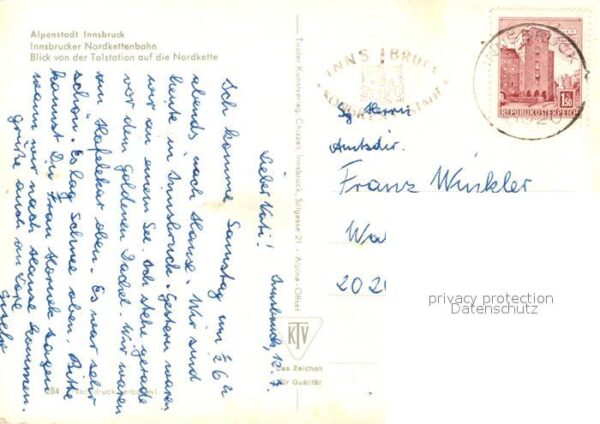 Alpenstadt Innsbruck
Innsbrucker Nordkettenbahn
Blick von der Talstation auf die Nordkette
Innsbruck, 12. 7.
Lieber Vati!
Ich komme Samstag um ½ 6 h
abends nach Hause. Wir sind
heute in Innsbruck. Gestern waren
wir an einem See. Ich stehe gerade
vor dem goldenen Dachl. Wir waren
am Hafelekar oben. Es war sehr
schön. Es lag Schnee oben. Bitte
kannst Du Frau sagen
wann wir nach Hause kommen.
Grüße auch an
Tiroler Kunstverlag Chizzali, Innsbruck, Sillgasse 21 - Alpina-Offset
KTV
Das Zeichen
für Qualität
284
INNSBRUCK
INNSBRUCK
6020
REPUBLIK ÖSTERREICH
1.50
Herrn
Amtsdir.
Franz Winkler
Wa
202
privacy protection
Datenschutz